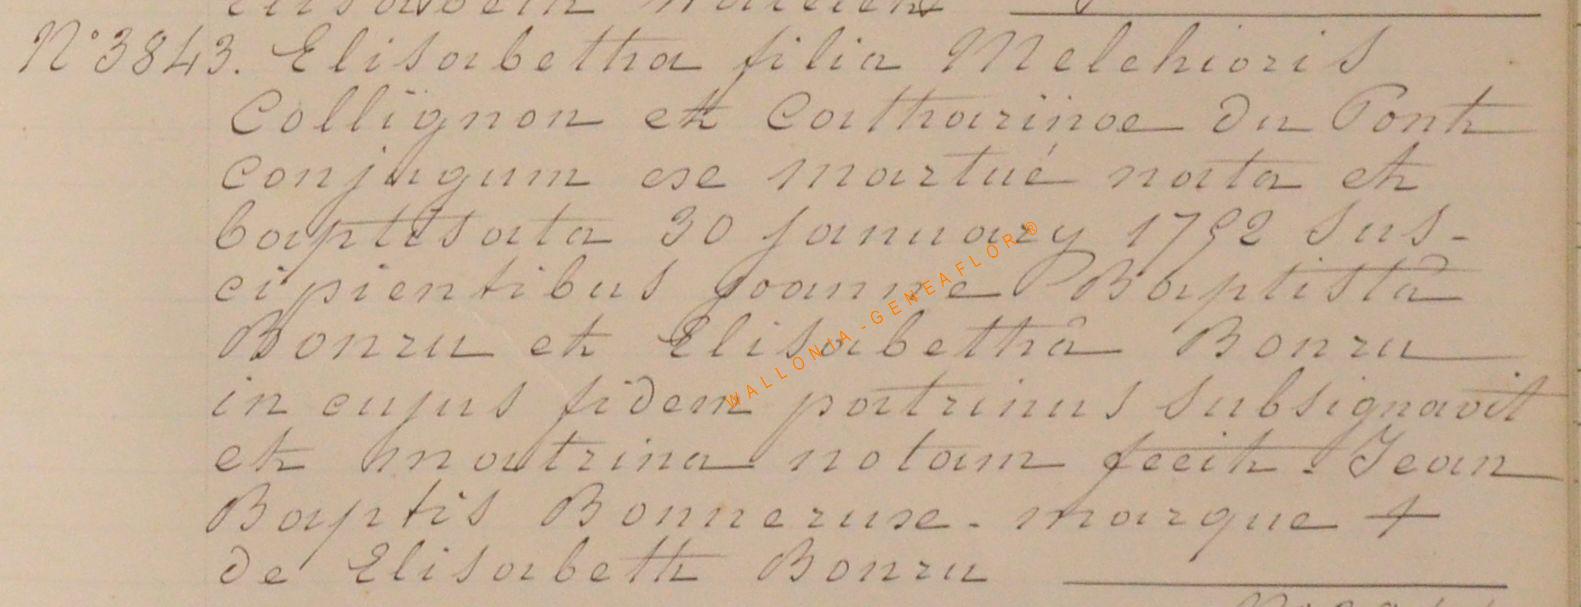 N° 3843. Elisabetha filia Melchioris
Collignon et Catharinae du Pont
conjugum ex martué nata et
baptisata 30 january 1792 sus-
cipientibus joanne Baptistâ
Bonru et Elisabethâ Bonru
in cujus fidem patrinus subsignavit
et matrina notam fecit. Jean
Baptis Bonneruxe. marque +
de Elisabeth Bonru
WALLONIA-GENEAFLOR®